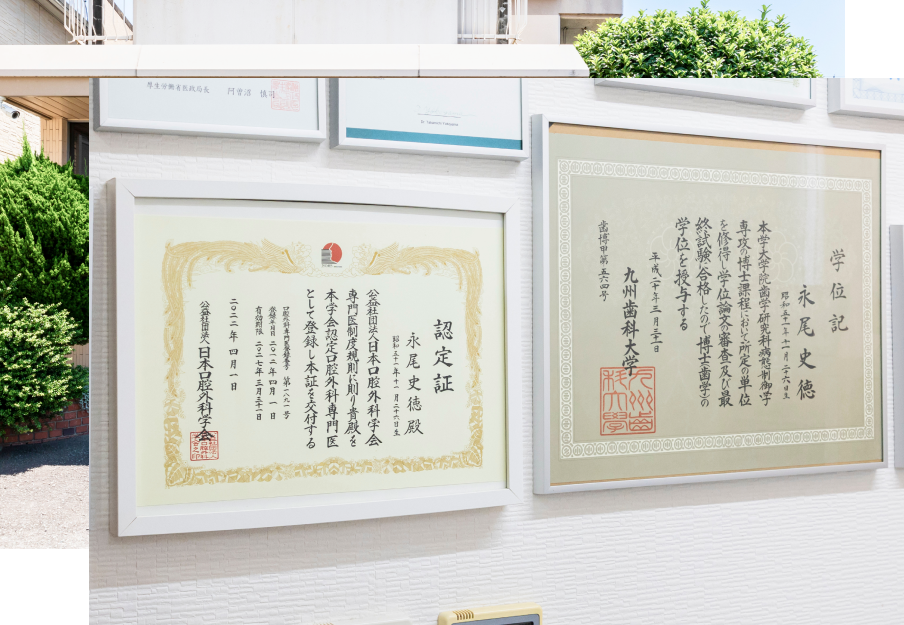 厚生労働省医政局長 阿曽沼 慎司
認定証
永尾史徳 殿
昭和五十一年十一月二十六日生
公益社団法人日本口腔外科学会
専門医制度規則に則り貴殿を
本学会認定口腔外科専門医
として登録し本証を交付する
口腔外科専門医登録番号 第一八九一号
登録年月日 二〇一二年四月一日
有効期限 二〇二七年三月三十一日
二〇二二年四月一日
公益社団法人日本口腔外科学会
学位記
永尾史徳
昭和五十一年十一月二十六日生
本学大学院歯学研究科病態制御学
専攻の博士課程において所定の単位
を修得し学位論文の審査及び最
終試験に合格したので博士(歯学)の
学位を授与する
平成二十年三月三十一日
九州歯科大学
歯博甲第五六四号